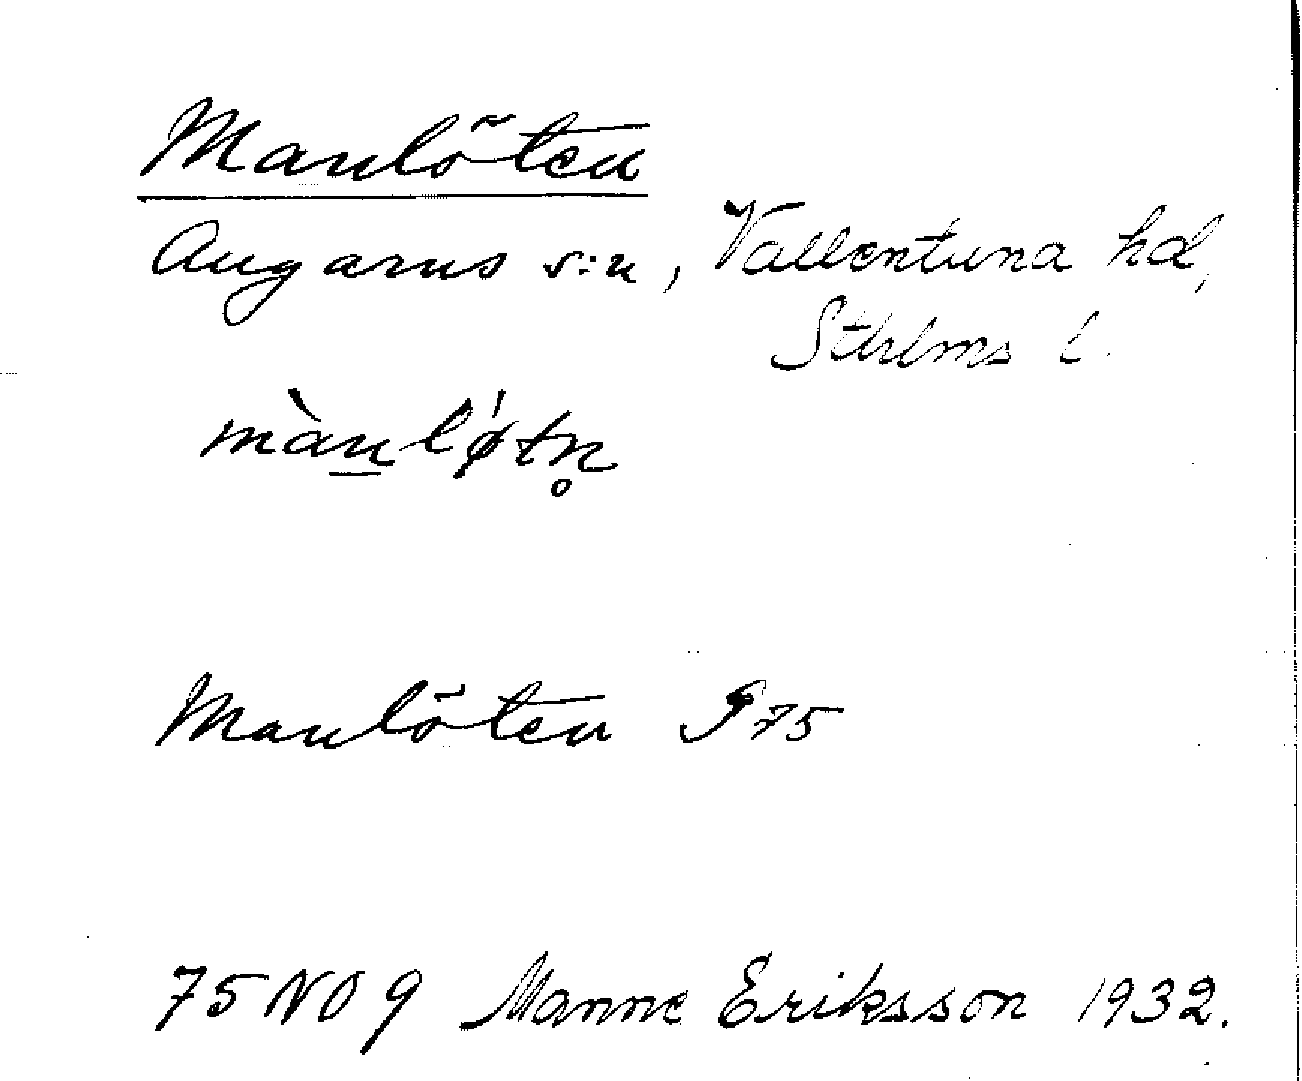 Manlöten
Angarns s:n, Vallentuna hd,
Sthlms l.
mànlǿtn̥
Manlöten J 75
75 NO 9 Manne Eriksson 1932.